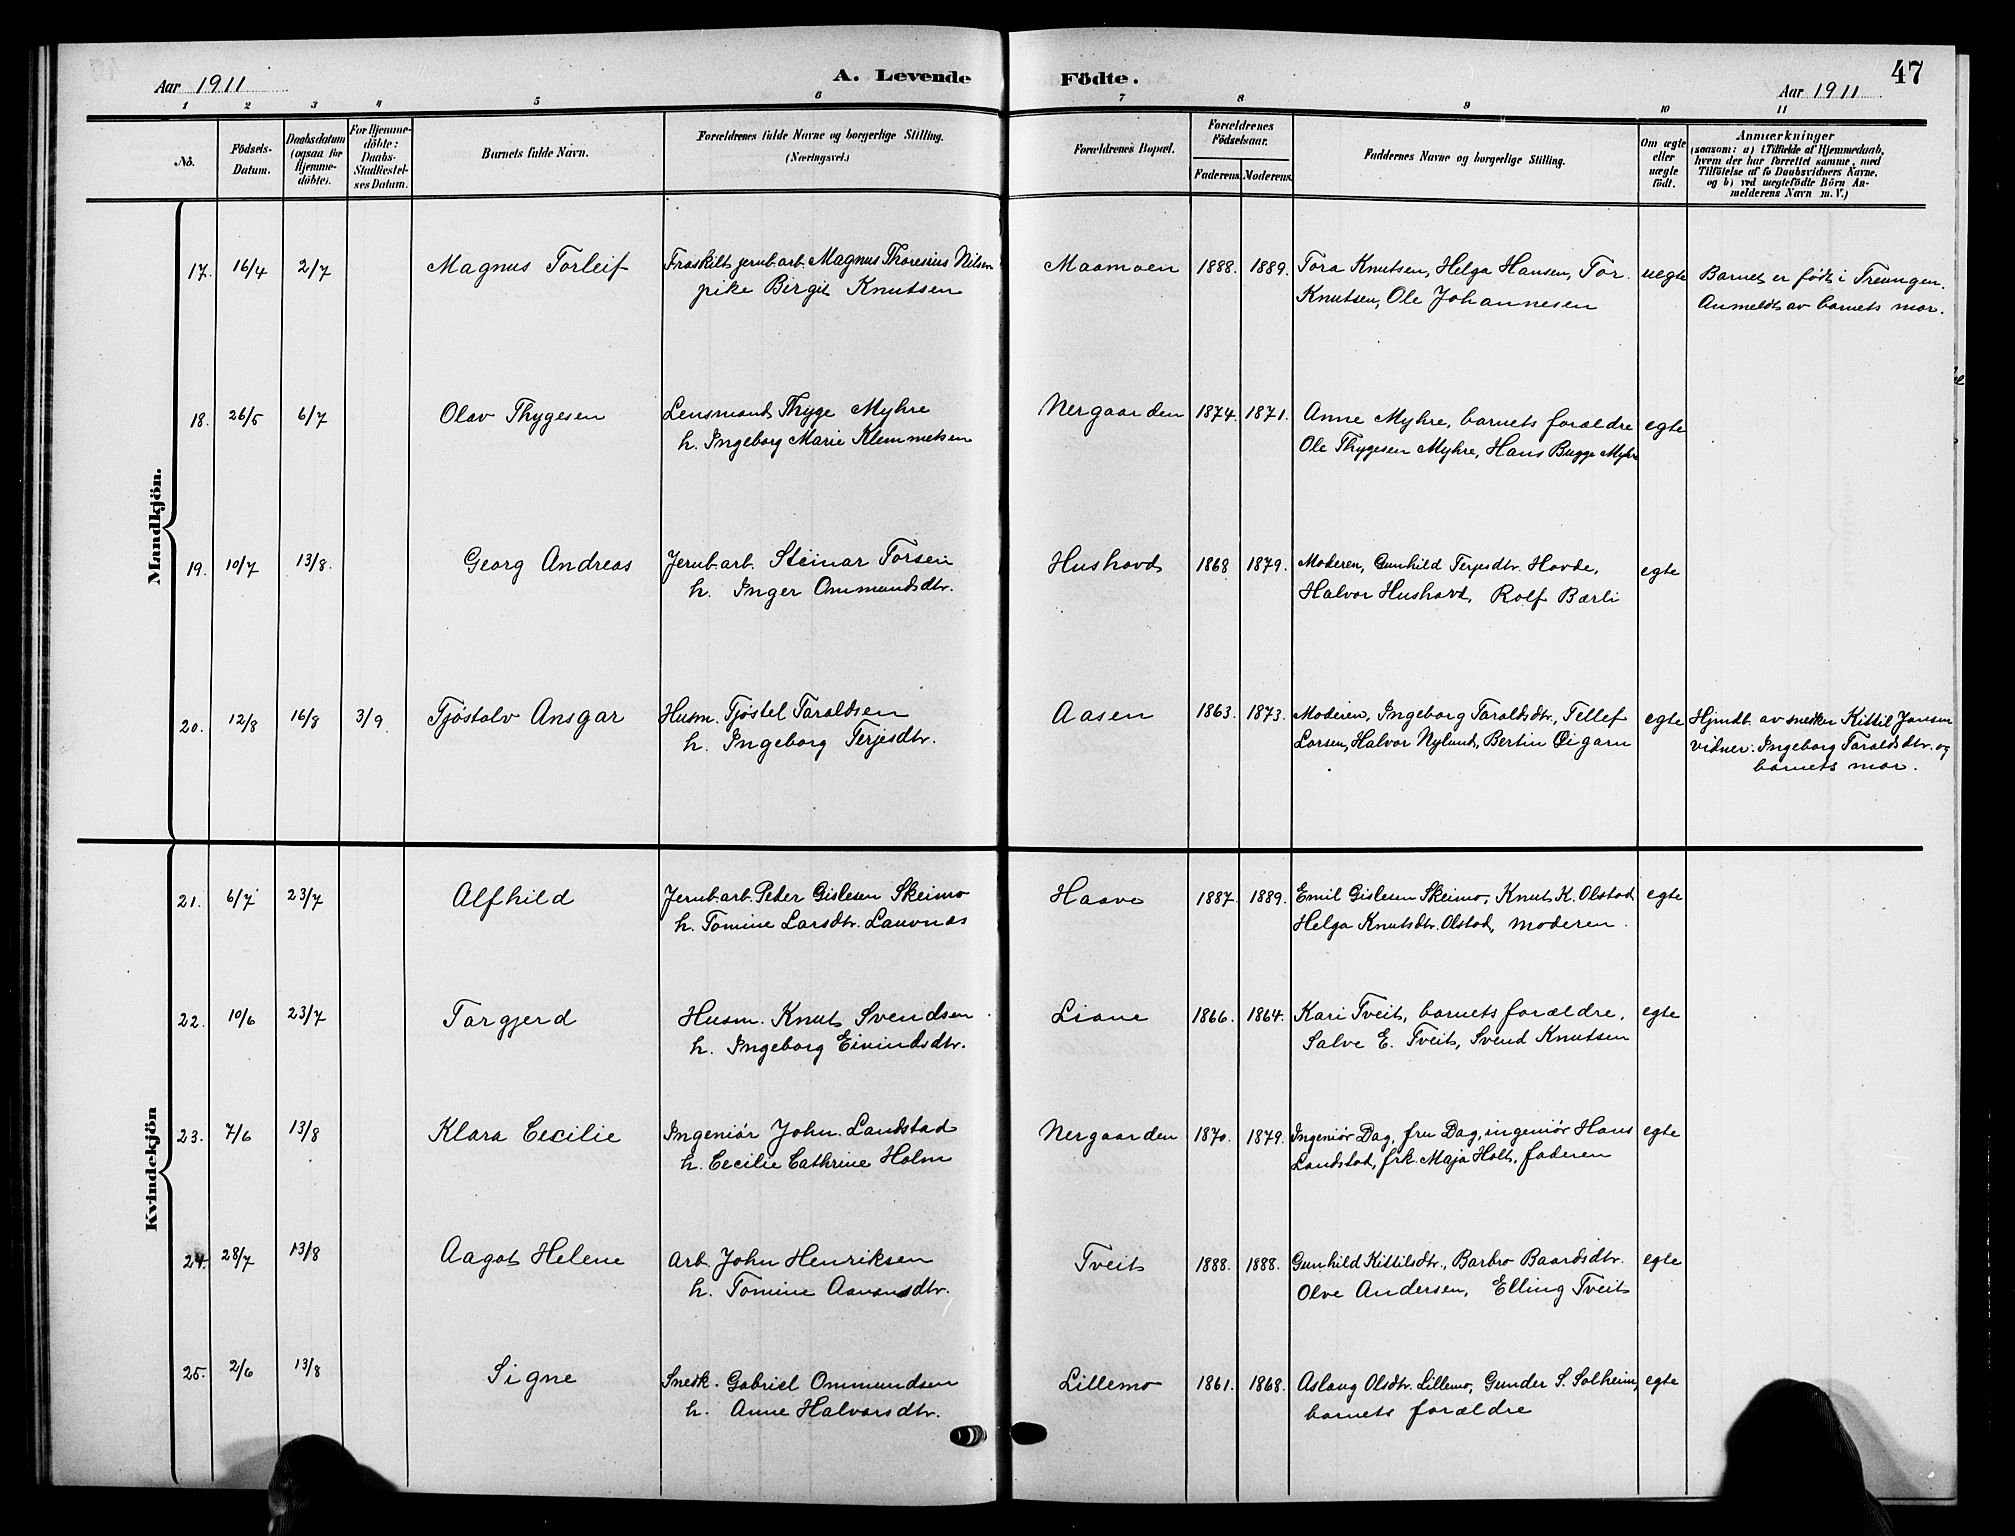 Aar 1911 A. Levende Födte. Aar 1911 47
1 2 3 4 5 6 7 8 9 10 11
No. Födsels-Datum. Daabsdatum (ogsaa for Hjemmedöbte). For Hjemmedöbte: Daabs-Stadfestelses Datum. Barnets fulde Navn. Forældrenes fulde Navne og borgerlige Stilling. (Næringsvei.) Forældrenes Bopæl. Forældrenes Födselsaar. Faderens. Moderens. Faddernes Navne og borgerlige Stilling. Om ægte eller uægte födt. Anmærkninger (saasom: a) i Tilfælde af Hjemmedaab, hvem der har forrettet samme, med Tilföielse af to Daabsvidners Navne, og b) ved uægtefödte Börn Anmelderens Navn m. V.)
Mandkjön.
17. 16/4 2/7 Magnus Torleif Fraskilt jernb.arb. Magnus Thoresius Nilsen Maamoen 1888. 1889. Tora Knutsen, Helga Hansen, Tor uegte Barnet er født i Treungen.
pike Birgit Knutsen Knutsen, Ole Johannesen Anmeldt av barnets mor.
18. 26/5 6/7 Olav Thygesen Lensmand Thyge Myhre Nergaarden 1874. 1871. Anne Myhre, barnets forældre egte
h. Ingeborg Marie Klemmetsen Ole Thygesen Myhre, Hans Bugge Myhre
19. 10/7 13/8. Georg Andreas Jernb.arb. Steinar Torsen Hushovd 1868 1879. Moderen, Gunhild Terjesdtr. Hovde, egte
h. Inger Ommundsdtr. Halvor Hushovd, Rolf Bærli
20. 12/8 16/8 3/9. Tjøstolv Ansgar Husm. Tjøstel Taraldsen Aasen 1863. 1873. Moderen, Ingeborg Taraldsdtr., Tellef egte Hjmdt. av snedker Kittil Jansen
h. Ingeborg Terjesdtr. Larsen, Halvor Nylund, Bertin Øigarn vidner: Ingeborg Taraldsdtr. og
barnets mor.
Kvindekjön
21. 6/7 23/7 Alfhild Jernb.arb. Peder Gislesen Skeimo Haave 1887. 1889. Emil Gislesen Skeimo, Knut K. Olstad egte
h. Tomine Larsdtr. Lauvnes Helga Knutsdtr. Olstad, moderen.
22. 10/6 23/7 Targjerd Husm. Knut Svendsen Liane 1866. 1864. Kari Tveit, barnets forældre, egte
h. Ingeborg Eivindsdtr. Salve E. Tveit, Svend Knutsen
23. 7/6 13/8 Klara Cecilie Ingeniør John Landstad Nergaarden 1870. 1879. Ingeniør Dag, fru Dag, ingeniør Hans egte
h. Cecilie Cathrine Holm Landstad, frk. Maja Holt, faderen
24. 28/7 13/8 Aagot Helene Arb. John Henriksen Tveit 1888. 1888. Gunhild Kittilsdtr., Barbro Baardsdtr. egte
h. Tomine Aanonsdtr. Olve Andersen, Elling Tveit
25. 2/6 13/8 Signe Snedk. Gabriel Ommundsen Lillemo 1861. 1868. Aslaug Olsdtr. Lillemo, Gunder S. Solheim, egte
h. Anne Halvorsdtr. barnets forældre